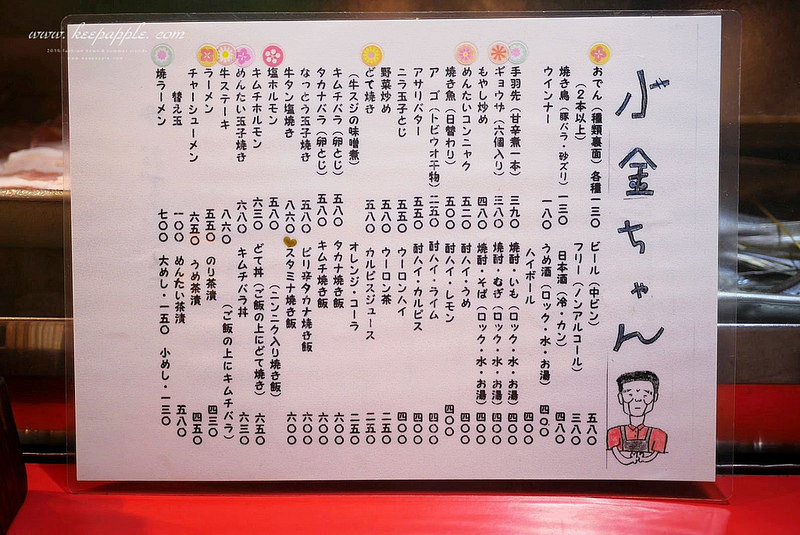 www.keepapple.com
小金ちゃん
おでん（種類裏面）各種一三〇
（２本以上）
焼き鳥（豚バラ・砂ズリ）一三〇
ウインナー 一八〇
手羽先（甘辛煮一本）三九〇
ギョウザ（六個入り）三八〇
もやし炒め 四八〇
めんたいコンニャク 五二〇
焼き魚（日替わり）五〇〇
アゴ（トビウオ干物）二五〇
アサリバター 五五〇
ニラ玉子とじ 五五〇
野菜炒め 五八〇
どて焼き 五八〇
（牛スジの味噌煮）
キムチバラ（卵とじ）五八〇
タカナバラ（卵とじ）五八〇
なっとう玉子焼き 五八〇
牛タン塩焼き 八六〇
塩ホルモン 五八〇
キムチホルモン 六三〇
めんたい玉子焼き 六八〇
牛ステーキ 八六〇
ラーメン 五五〇
チャーシューメン 六五〇
替え玉 一〇〇
焼ラーメン 七〇〇
ビール（中ビン）五八〇
フリー（ノンアルコール）三八〇
日本酒（冷・カン）四八〇
うめ酒（ロック・水・お湯）四〇〇
ハイボール 四〇〇
焼酎・いも（ロック・水・お湯）四〇〇
焼酎・むぎ（ロック・水・お湯）四〇〇
焼酎・そば（ロック・水・お湯）四〇〇
酎ハイ・うめ 四〇〇
酎ハイ・レモン 四〇〇
酎ハイ・ライム 四〇〇
酎ハイ・カルピス 四〇〇
ウーロンハイ 四〇〇
ウーロン茶 二五〇
カルピスジュース 二五〇
オレンジ・コーラ 二五〇
タカナ焼き飯 六〇〇
キムチ焼き飯 六〇〇
ピリ辛タカナ焼き飯 六〇〇
スタミナ焼き飯 六〇〇
（ニンニク入り焼き飯）
どて丼（ご飯の上にどて焼き）六五〇
キムチバラ丼 六三〇
（ご飯の上にキムチバラ）
のり茶漬 四三〇
うめ茶漬 四五〇
めんたい茶漬 五八〇
大めし・一五〇 小めし・一三〇